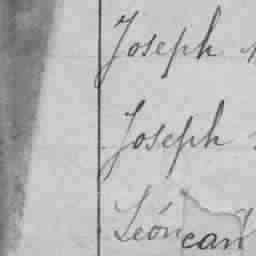 Joseph
Joseph
León
can